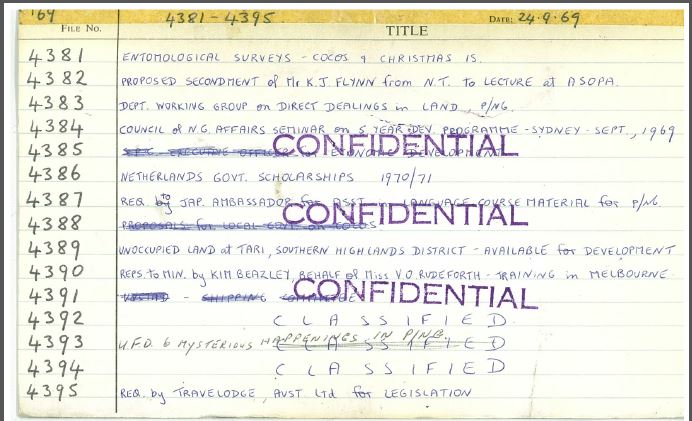 169 4381-4395. DATE: 24.9.69
FILE No. TITLE
4381 ENTOMOLOGICAL SURVEYS - COCOS & CHRISTMAS IS.
4382 PROPOSED SECONDMENT of Mr K.J. FLYNN from N.T. to LECTURE at ASOPA.
4383 DEPT. WORKING GROUP on DIRECT DEALINGS in LAND, P/NG.
4384 COUNCIL of N.G. AFFAIRS SEMINAR on 5 YEAR DEV. PROGRAMME - SYDNEY - SEPT., 1969
CONFIDENTIAL
4385 EXECUTIVE OFFICER for ECONOMIC DEVELOPMENT
4386 NETHERLANDS GOVT. SCHOLARSHIPS 1970/71
4387 REQ. by to JAP. AMBASSADOR for ASST. in LANGUAGE COURSE MATERIAL for P/NG.
CONFIDENTIAL
4388 PROPOSALS for LOCAL GOVT. on COCOS
4389 UNOCCUPIED LAND at TARI, SOUTHERN HIGHLANDS DISTRICT - AVAILABLE for DEVELOPMENT
4390 REPS. to MIN. by KIM BEAZLEY, BEHALF of Miss V.O. RUDEFORTH - TRAINING in MELBOURNE.
CONFIDENTIAL
4391 - SHIPPING
4392 CLASSIFIED.
4393 U.F.O. & MYSTERIOUS HAPPENINGS IN P/NG. CLASSIFIED
4394 CLASSIFIED
4395 REQ. by TRAVELODGE, AUST. Ltd for LEGISLATION